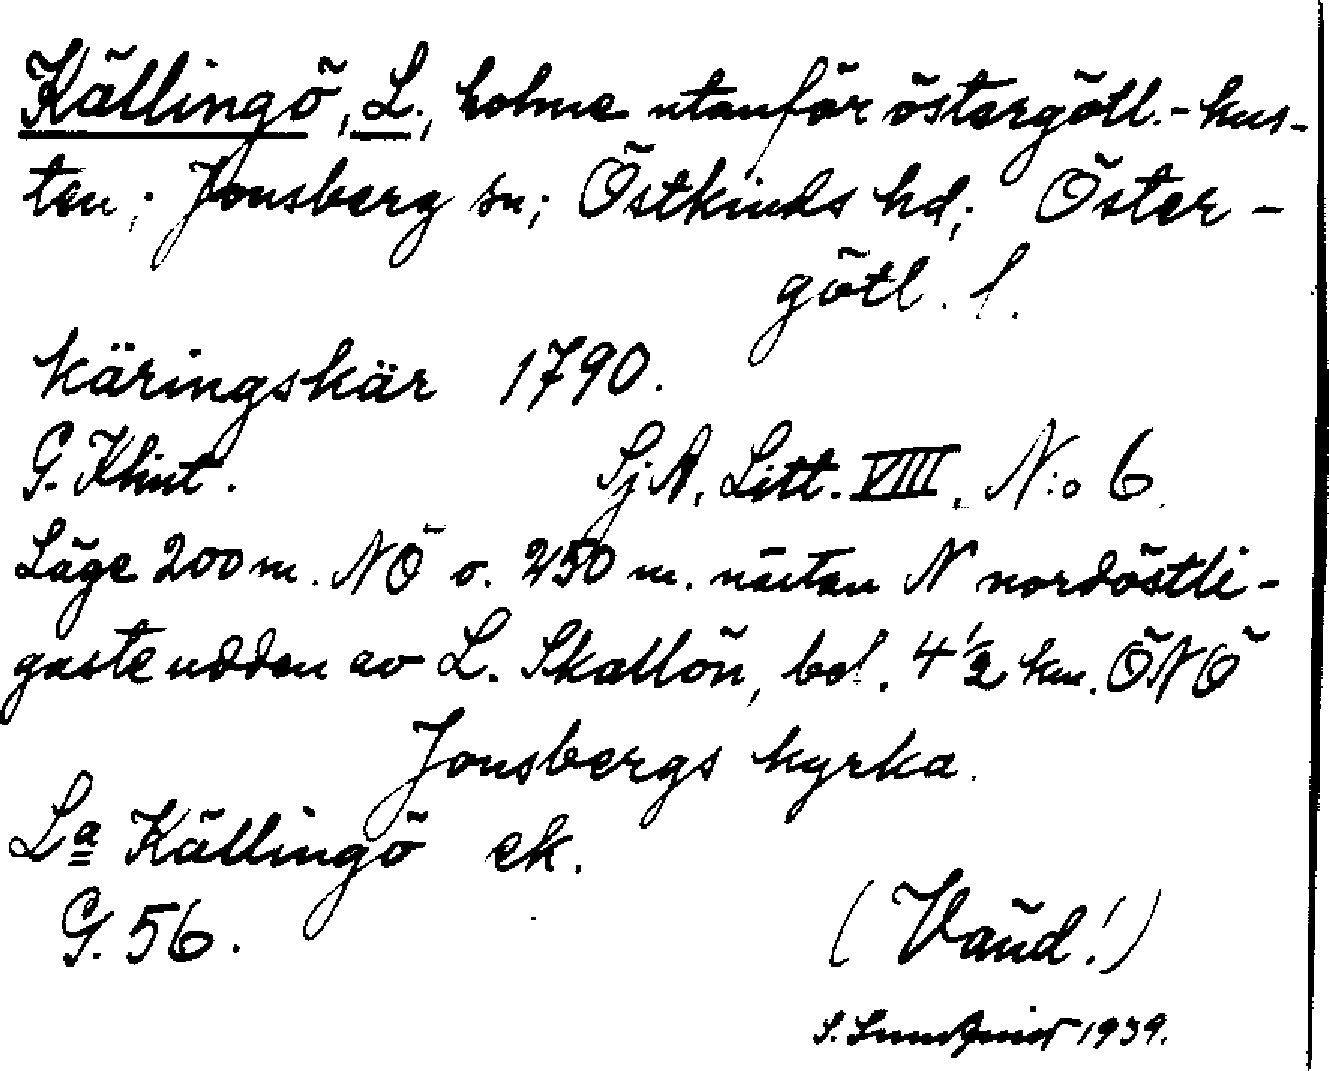 Källingö, L., holme utanför östergötl.-kus-
ten; Jonsberg sn; Östkinds hd; Öster-
götl. l.
Käringskär 1790.
G. Klint. SjA, Litt. VIII, N:o 6.
Läge 200 m. NÖ o. 250 m. nästan N nordöstli-
gaste udden av L. Skallön, bel. 4½ km. ÖNÖ
Jonsbergs kyrka.
La Källingö ek.
G. 56.
(Vänd!)
S. Sundquist 1939.